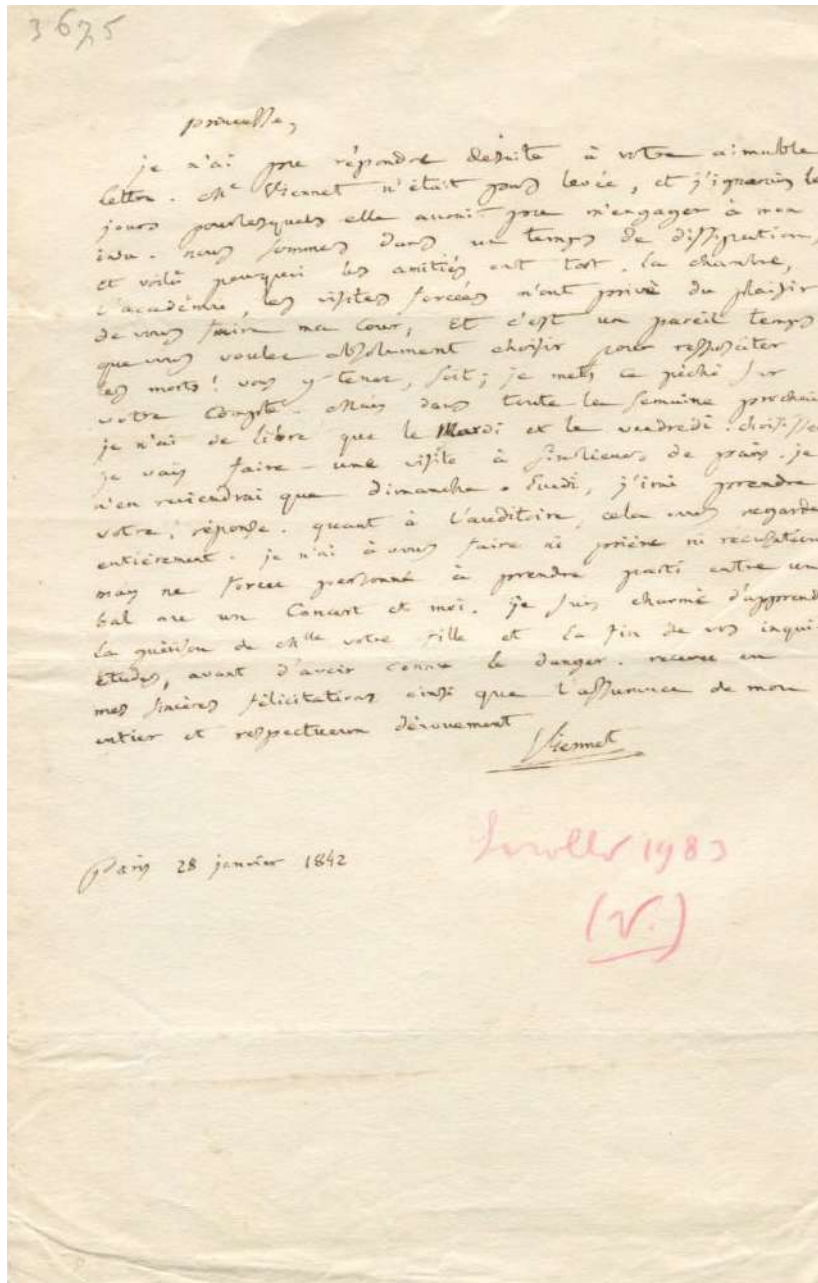 3675
princesse,
je n'ai pu répondre desuite à votre aimable
lettre. Me Viennet n'était pas levée, et j'ignorais le
jours pourlesquels elle aurait pu m'engager à mon
insu. nous sommes dans un temps de dissipation,
et voilà pourquoi les amitiés ont tort. la chambre,
l'académie, les visites forcées m'ont privé du plaisir
de vous faire ma cour, Et c'est un pareil temps
que vous voulez absolument choisir pour ressusciter
les morts! vous y tenez, soit; je mets ce péché sur
votre compte. Mais dans toute la semaine prochain
je n'ai de libre que le Mardi et le vendredi. choisisse
je vais faire une visite à lieues de paris. je
n'en reviendrai que dimanche. Lundi, j'irai prendre
votre réponse. quant à l'auditoire, cela vous regarde
entièrement. je n'ai à vous faire ni prière ni récusation
mais ne forcez personne à prendre parti entre un
bal ou un Concert et moi. je suis charmé d'apprend
la guérison de Mlle votre fille et la fin de vos inqui-
études, avant d'avoir connu le danger. recevez en
mes sincères félicitations ainsi que l'assurance de mon
entier et respectueux dévouement
Viennet
Paris 28 janvier 1842
1983
(V.)